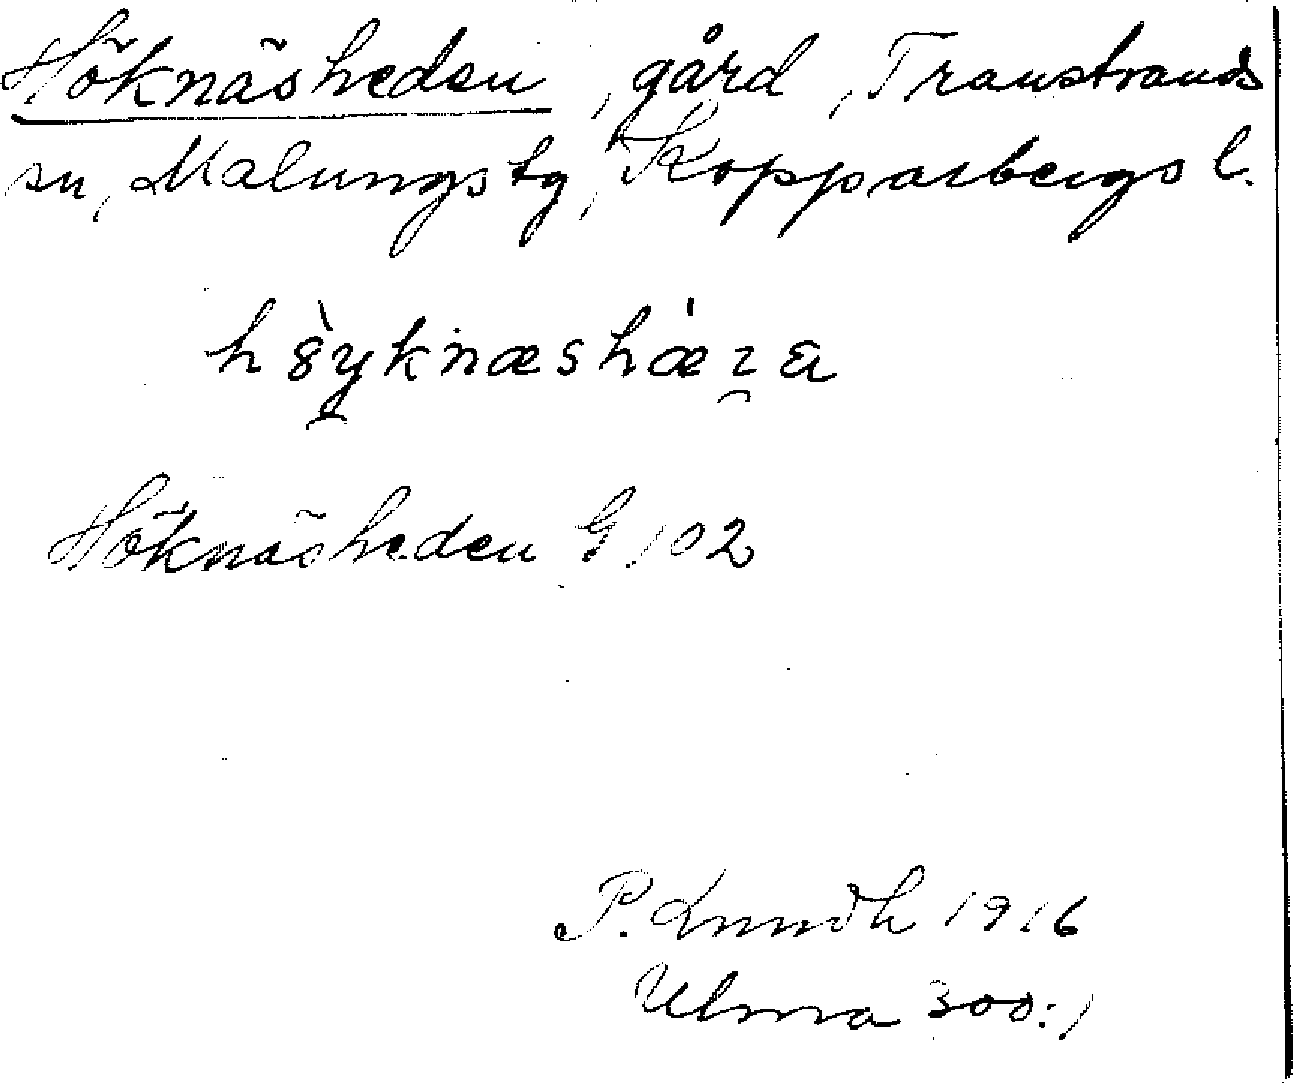 Höknäsheden, gård, Transtrands
sn, Malungs tg, Kopparbergs l.
Höknäsheden G 102
P. Lundh 1916
Ulma 300:1